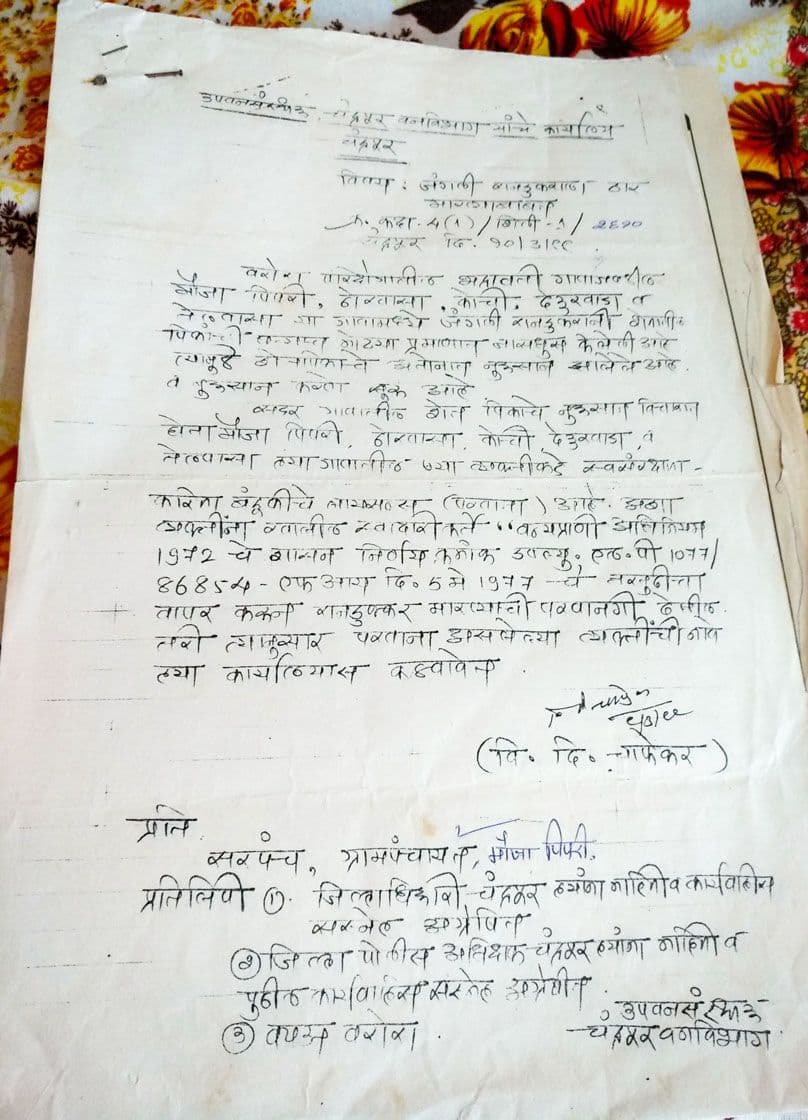 उपवनसंरक्षक, चंद्रपूर वनविभाग यांचे कार्यालय
चंद्रपूर
विषय : जंगली रानडुकराला ठार
मारणाबाबत
क्र. कक्ष-4(1)/शिली-1/2690
चंद्रपूर दि. 10/3/99
वरोरा परिक्षेत्रातील भद्रावती गावाजवळील
मौजा पिपरी, ढोरवासा, कोची, देऊरवाडा व
तेलवासा या गावामध्ये जंगली रानडुकरांनी शेतातील
पिकाची प्रमाणात नासधुस केलेली आहे
त्यामुळे शेतपिकाचे अतोनात नुकसान झालेले आहे.
व नुकसान करणे सुरू आहे
सदर गावातील शेत पिकाचे नुकसान विचारात
घेता मौजा पिपरी, ढोरवासा, कोची, देऊरवाडा, व
तेलवासा ह्या गावातील ज्या व्यक्तीकडे स्वसंरक्षणा-
करिता बंदूकीचे लायसन्स (परवाना) आहे. अशा
व्यक्तींना वरील "वन्यप्राणी अधिनियम
1972 चे शासन निर्णय क्रमांक डब्ल्यु. एल. पी 1077/
86854-एफ आय दि. 5 मे 1977 - चे तरतुदीचा
वापर करून रानडुक्कर मारण्याची परवानगी देतील.
तरी त्यानुसार परवाना असलेल्या व्यक्तींची नावे
ह्या कार्यालयास कळवावेत.
(वि. दि. चाफेकर)
प्रति,
सरपंच, ग्रामपंचायत, मौजा पिपरी.
प्रतिलिपी (1). जिल्हाधिकारी, चंद्रपूर ह्यांना माहिती व कार्यवाहीस
सस्नेह अग्रेषित
(2) जिल्हा पोलीस अधिक्षक चंद्रपूर ह्यांना माहिती व
पुढील कार्यवाहीस सस्नेह अग्रेषीत.
(3) वपअ वरोरा.
उपवनसंरक्षक
चंद्रपूर वनविभाग